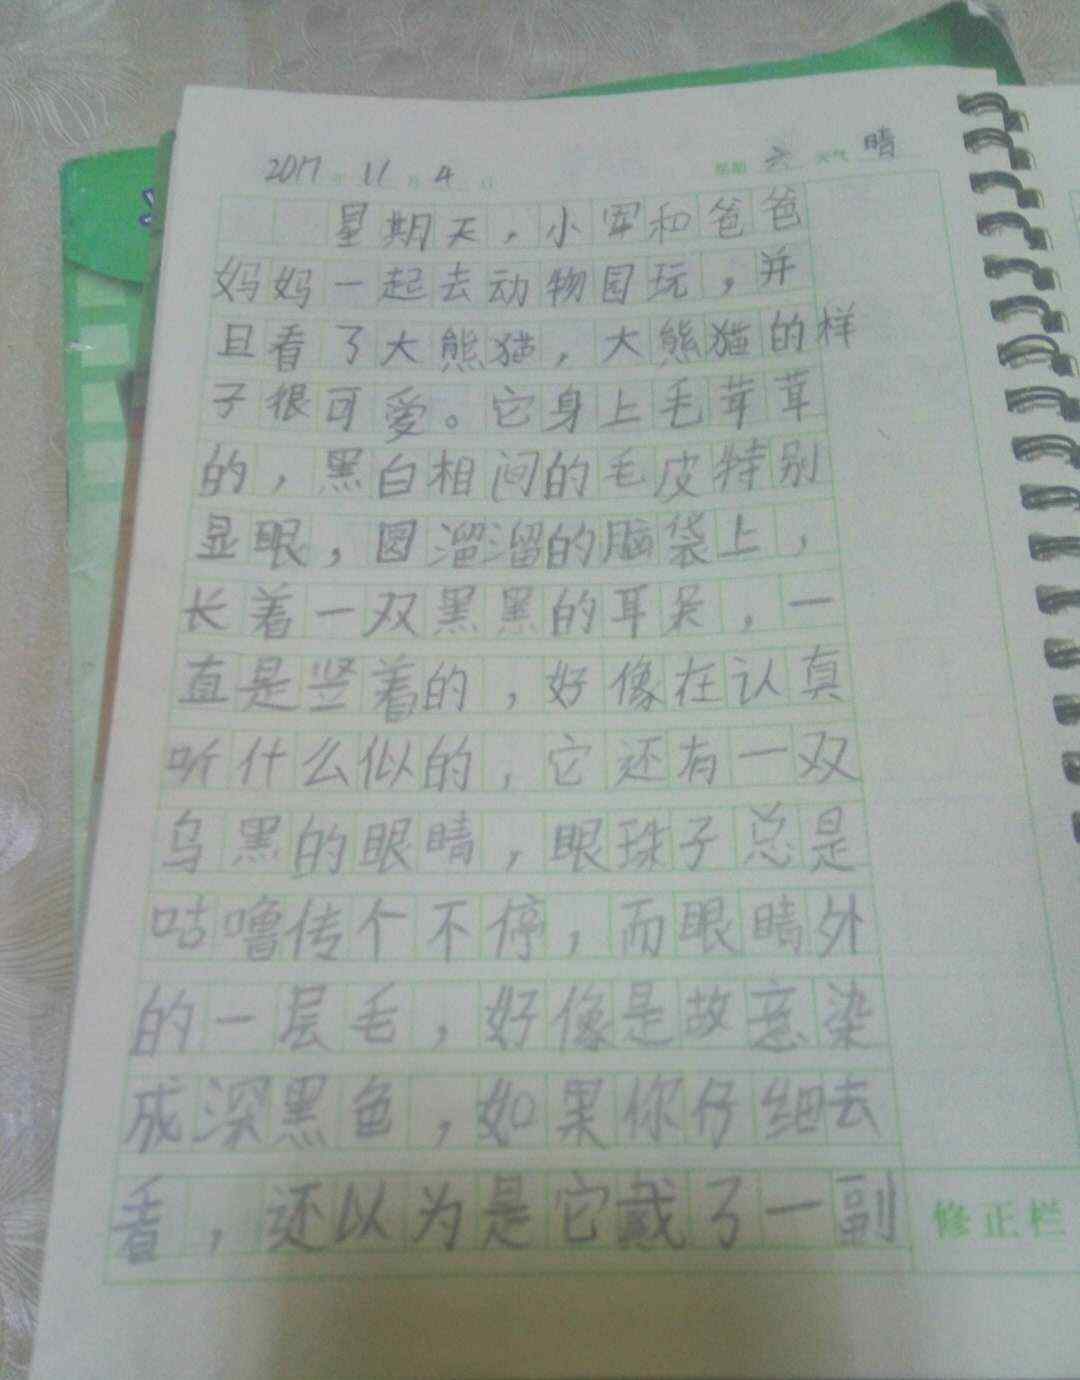 2017年 11月 4日 星期 六 天气 晴
星期天，小军和爸爸
妈妈一起去动物园玩，并
且看了大熊猫，大熊猫的样
子很可爱。它身上毛茸茸
的，黑白相间的毛皮特别
显眼，圆溜溜的脑袋上，
长着一双黑黑的耳朵，一
直是竖着的，好像在认真
听什么似的，它还有一双
乌黑的眼睛，眼珠子总是
咕噜传个不停，而眼睛外
的一层毛，好像是故意染
成深黑色，如果你仔细去
看，还以为是它戴了一副
修正栏